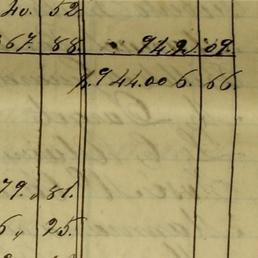 40. 52
367. 88 . 942.09.
1.944.006.66
79. 81.
6, 25.